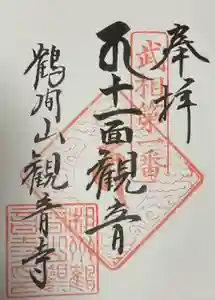 奉拝
武相第一番
十一面觀音
鶴間山觀音寺